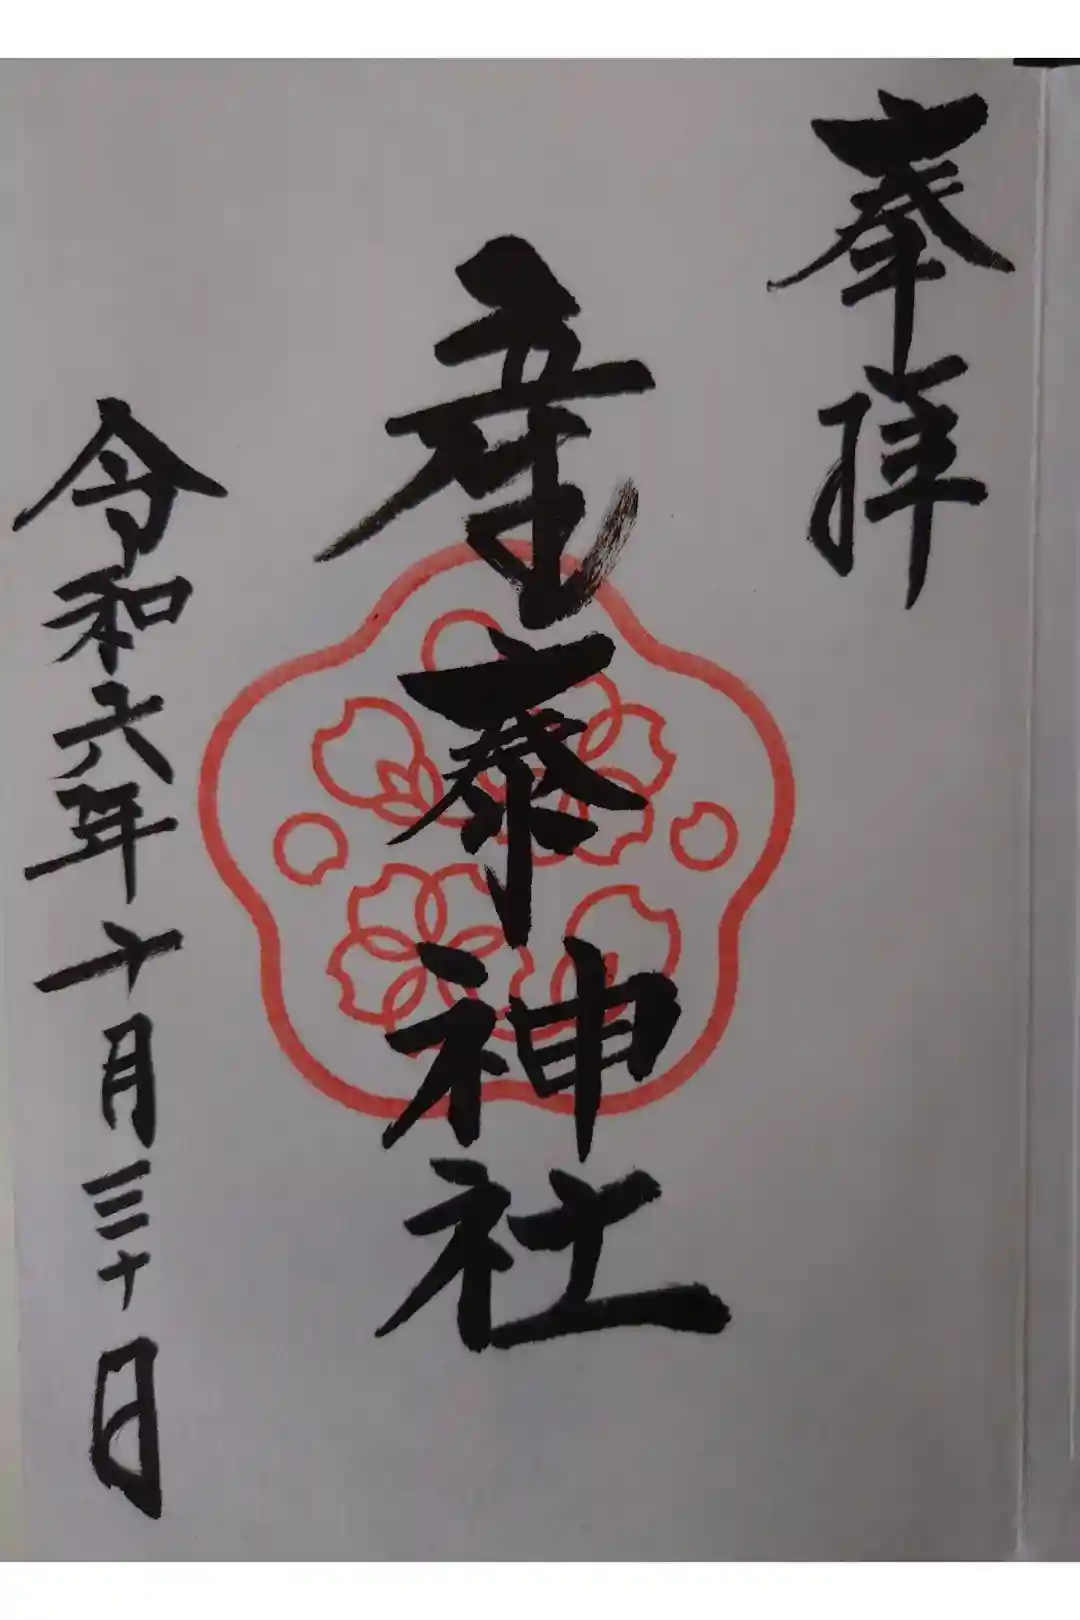 奉拝
産泰神社
令和六年十月三十日